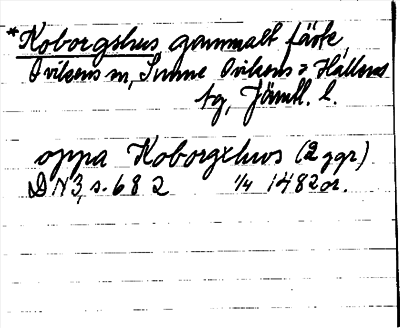 *Koborgshus gammalt fäste,
Ovikens sn, Sunne Ovikens o Hallens
tg, Jämtl. l.
oppa Koborgxhws (2 ggr)
DN 3, s. 682 1/4 1482 or.